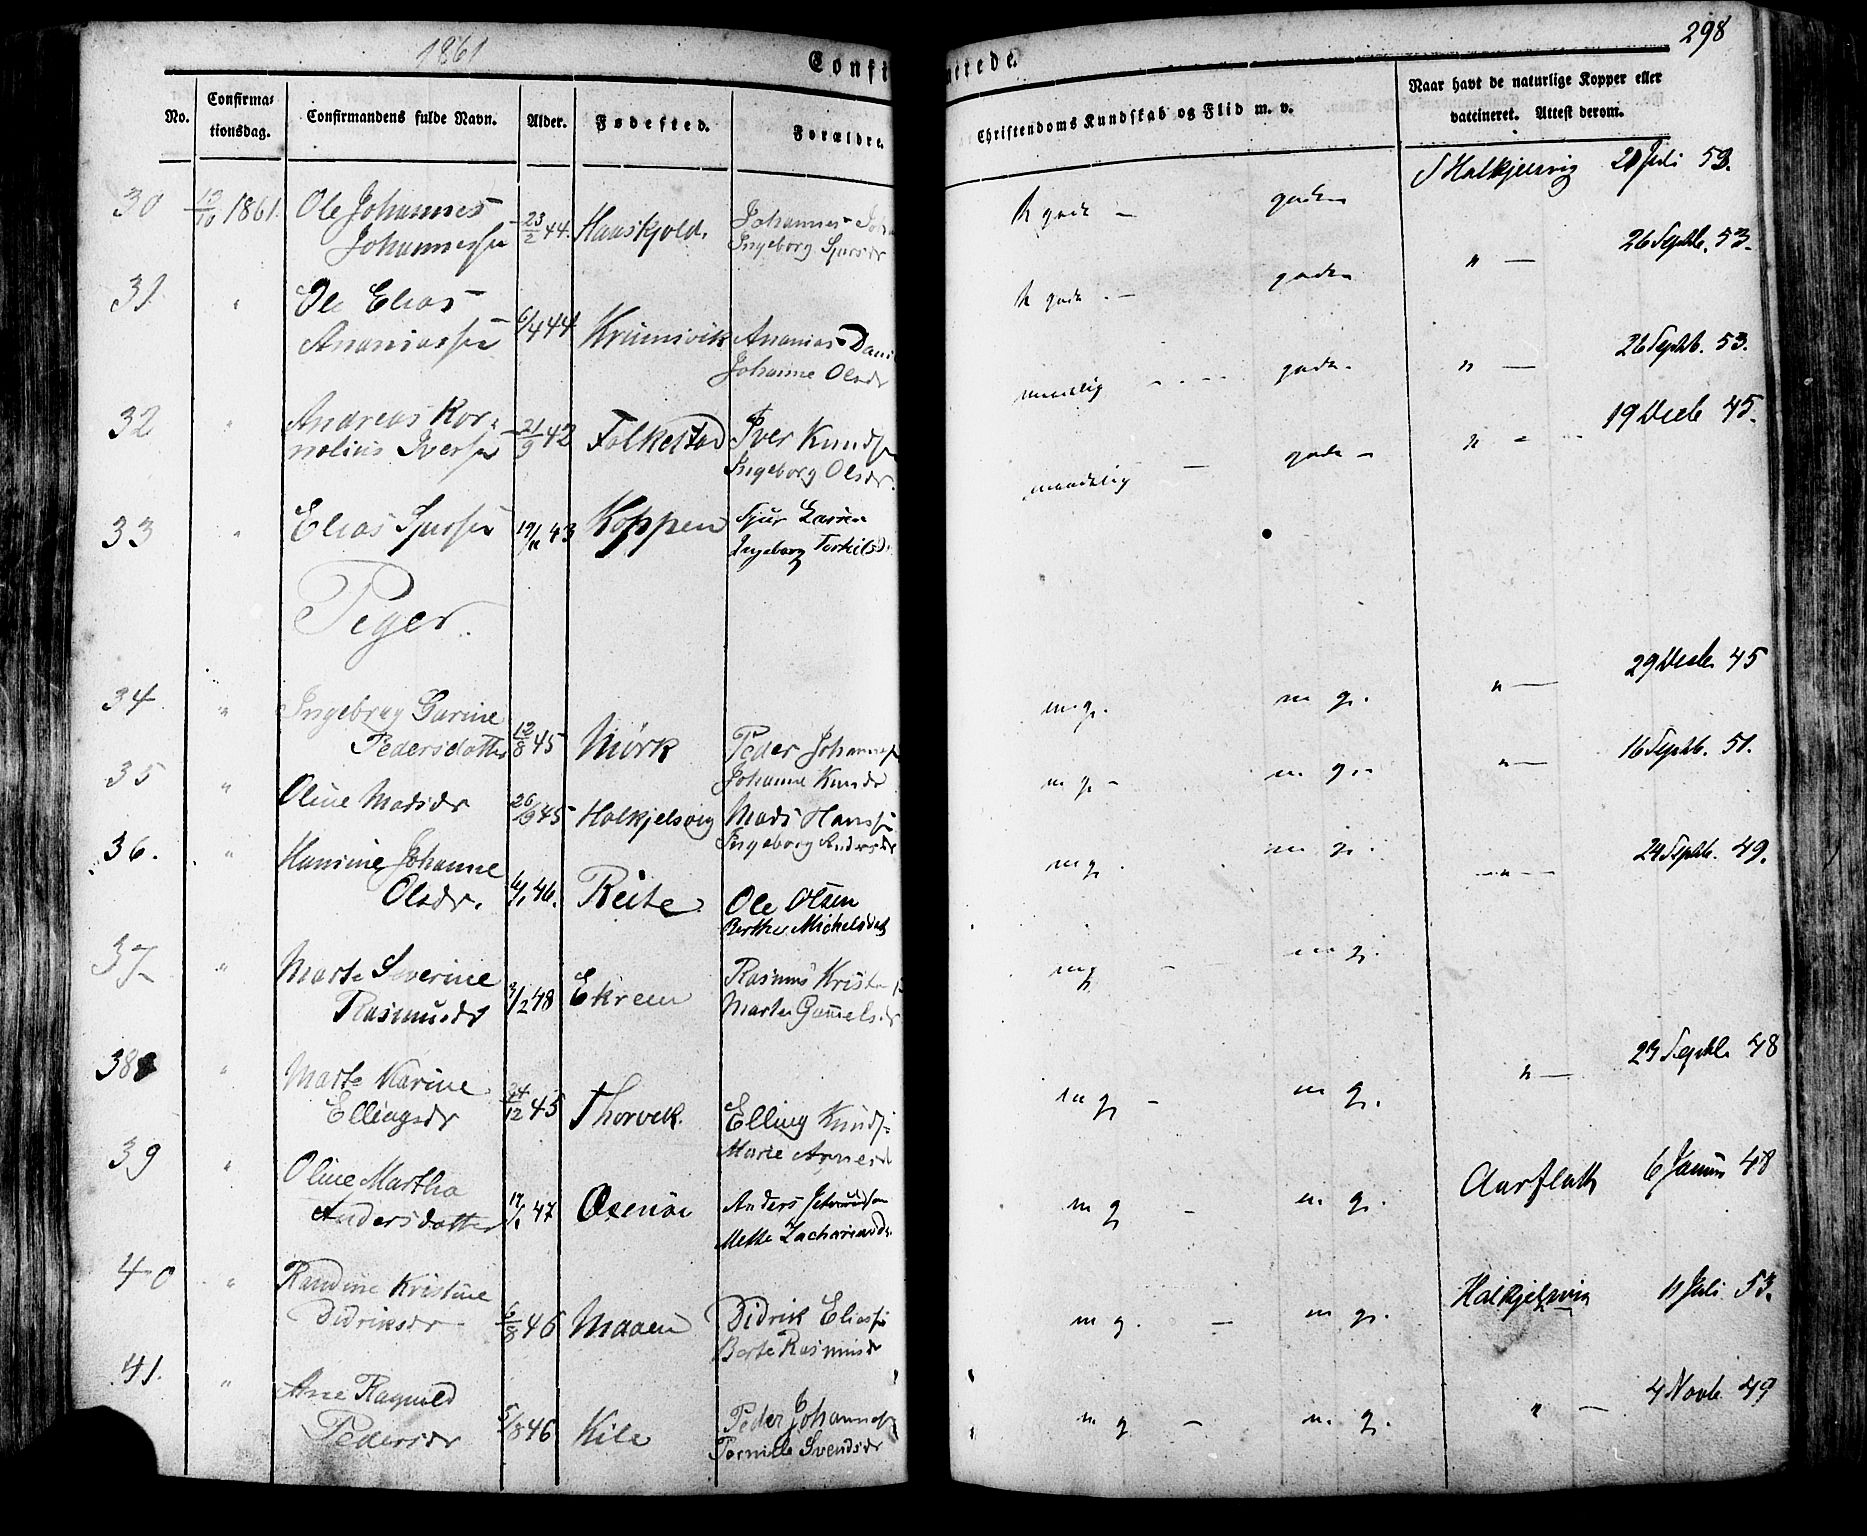 1861
298
Confi
merede.
No.
Confirmationsdag.
Confirmandens fulde Navn.
Alder.
Fødested.
Forældre
Christendoms Kundskab og Flid m. v.
Naar havt de naturlige Kopper eller
vaccineret. Attest derom.
30 13/10 1861. Ole Johannes Johannessen 23/2 44. Haaskjold. Johannes Ingeborg Sjursdr godt — goden Halkjelsvig Juli 53.
31 " Ole Elias Ananiassen 6/4 44 Krumsvik Ananias Dani Johanne Olsdr godt — goden " — 26 Septb. 53.
32 " Andreas Kornelius Iversen 21/9 42 Folkestad Iver Knuds Ingeborg Olsdr. maadelig goden " — 26 Septb. 53.
33 " Elias Sjursen 19/11 43 Koppen Sjur Larsen Ingeborg Torkilsd. maadelig — goden — " 19 Decb 45.
Piger.
34 " Ingebreg Garine Pedersdatter 12/8 45 Mörk Peder Johannes Johanne Knudsdr m. g. m g. " — 29 Decb. 45
35 " Oline Madsdr 26/9 45 Halkjelsvig Mads Hanss Ingeborg Andersdr m g — m g. " — 16 Septb. 51.
36. " Hansine Johanne Olsdr. 46. Reite Ole Olsen Berthe Michelsdat m g. m g. " — 24 Septb. 49.
37 " Marte Severine Rasmusdr 3/2 48 Ekrem Rasmus Krist Marte Gumelsdr m g — m g.
38 " Marte Karine Ellingsdr 24/12 45 Thorvik. Elling Knuds Marie Arnesd m g — m g. " — 23 Septb. 48
39 " Oline Martha Andersdatter 17/1 47 Osenöe Anders Mette Zachariasd. m g — m g. Aarflath 6 Januar 48
40 " Randine Kristine Didriksdr 6/8 46 Maaen Didrik Elias Berte Rasmusdr m g. — m g. Halkjelsvig 11 Juli 53.
41. " Ane Ragnild Pedersdr 5/8 46 Kile Peder Johannes Pernille Svendsdr m g — m. g. " — 4 Novb 49